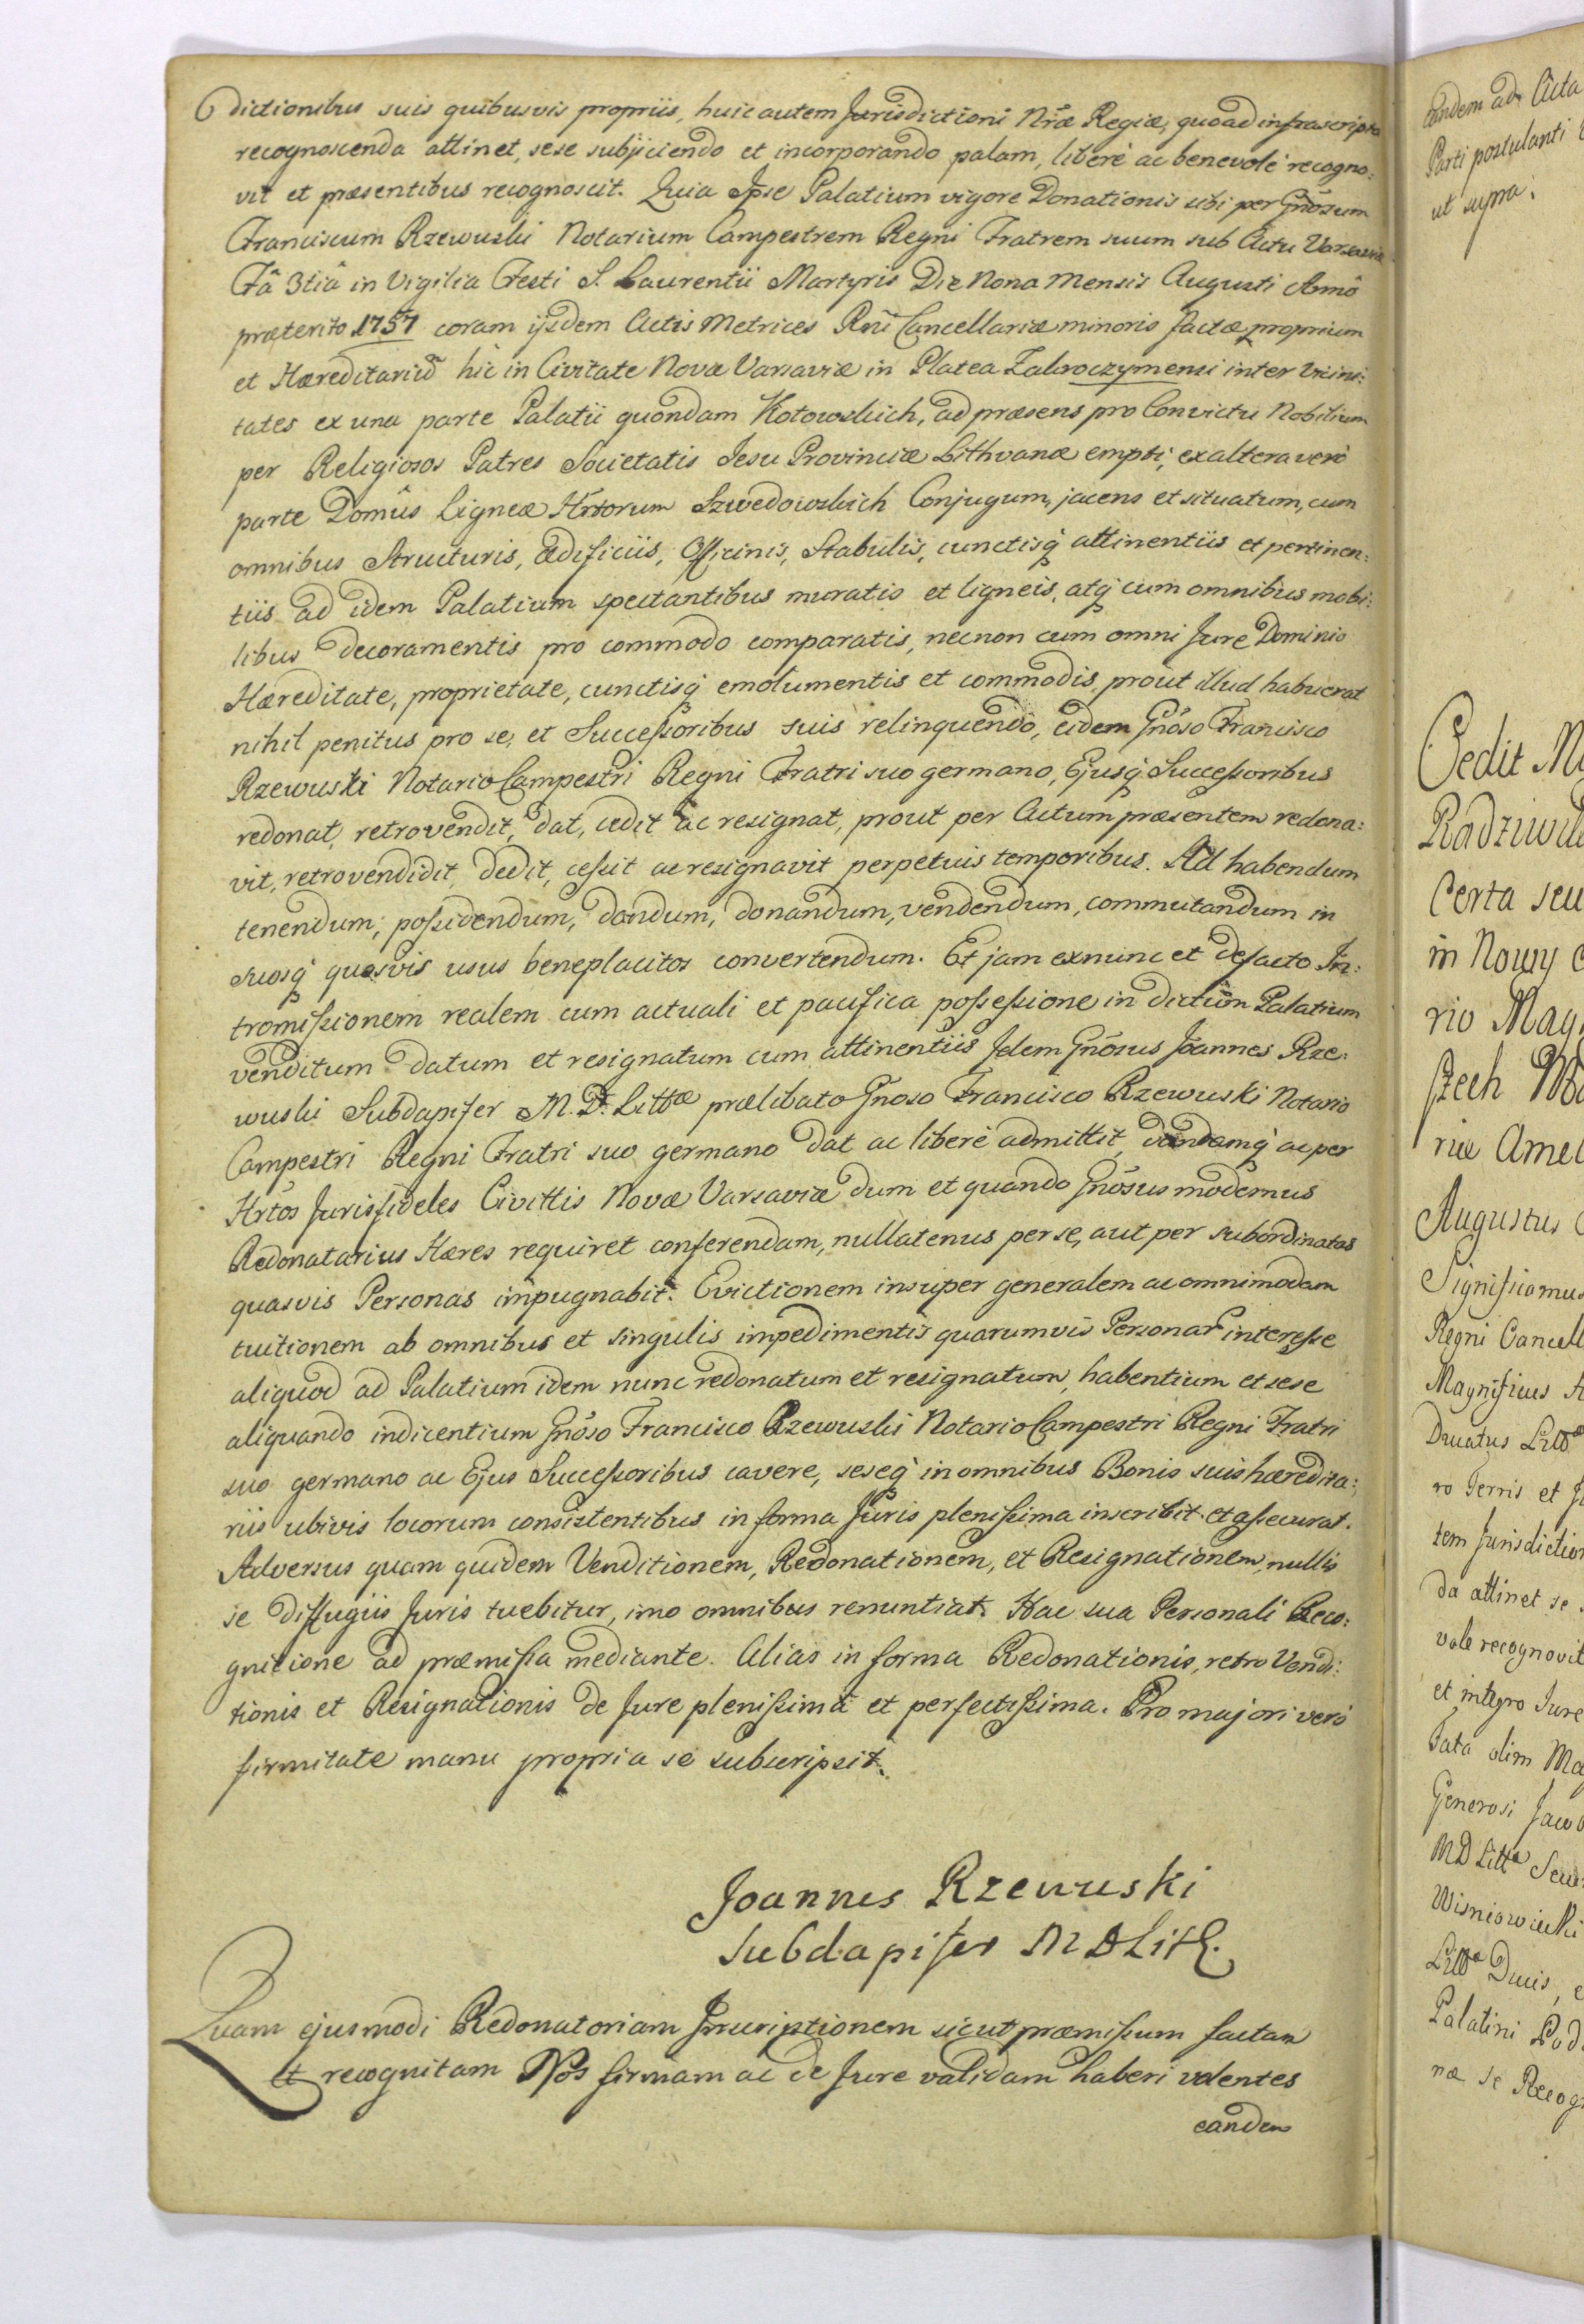 dictionibus suis quibusvis propriis, huic autem Jurisdictioni Nrãe Regiæ, quoad infrascripta
recognoscenda attinet, sese subjiciendo et incorporando palam, liberè ac benevolè recogno:
vit et præsentibus recognoscit. Quia Ipse Palatium vigore Donationis sibi per Gnõsum
Franciscum Rzewuski Notarium Campestrem Regni Fratrem suum sub Actu Varsaviæ
Frâ 3tiâ in Vigilia Festi S. Laurentii Martyris Die Nona Mensis Augusti Annô
præterito 1757 coram ijsdem Actis Metrices Rñi Cancellariæ minoris factæ, proprium
et Hæreditariũ hîc in Civitate Novæ Varsaviæ in Platea Zakroczymensi inter Vicini:
tates ex una parte Palatii quondam Kotowskich, ad præsens pro Convictu Nobilium
per Religiosos Patres Societatis Jesu Provinciæ Lithvanæ empti, ex altera verò
parte Domûs Ligneæ Hrtorum Szwedowskich Conjugum, jacens et situatum, cum
omnibus Structuris, ædificiis, Officinis, Stabulis, cunctisq́ attinentiis et pertinen:
tiis ad idem Palatium spectantibus muratis et ligneis, atq́ cum omnibus mobi:
libus decoramentis pro commodo comparatis, necnon cum omni Jure Dominio
Hæreditate, proprietate, cunctisq́ emolumentis et commodis, prout illud habuerat
nihil penitus pro se, et Successoribus suis relinquendo, eidem Gnõso Francisco
Rzewuski Notario Campestri Regni Fratri suo germano, Ejusq́ Successoribus
redonat, retrovendit, dat, cedit ac resignat, prout per Actum præsentem redona:
vit, retrovendidit, dedit, cessit ac resignavit perpetuis temporibus. Ad habendum
tenendum, possidendum, dandum, donandum, vendendum, commutandum in
suosq́ quosvis usus beneplacitos convertendum. Et jam exnunc et defacto In:
tromissionem realem cum actuali et pacifica possessione in dictũm Palatium
venditum datum et resignatum cum attinentiis Idem Gnõsus Joannes Rze:
wuski Subdapifer M. D. Littæ prælibato Gnoso Francisco Rzewuski Notario
Campestri Regni Fratri suo germano dat ac liberè admittit, dandamq́ ac per
Hrtõs Jurisfideles Civittis Novæ Varsaviæ dum et quando Gnõsus modernus
Redonatarius Hæres requiret conferendam, nullatenus per se, aut per subordinatas
quasvis Personas impugnabit. Evictionem insuper generalem ac omnimodam
tuitionem ab omnibus et singulis impedimentis quarumvis Personar̃ interesse
aliquod ad Palatium idem nunc redonatum et resignatum, habentium et sese
aliquando indicentium Gnõso Francisco Rzewuski Notario Campestri Regni Fratri
suo germano ac Ejus Successoribus cavere, seseq́ in omnibus Bonis suis hæredita:
riis ubivis locorum consistentibus in forma Juris plenissima inscribit et assecurat.
Adversus quam quidem Venditionem, Redonationem, et Resignationem, nullis
se diffugiis Juris tuebitur, imo omnibus renuntiat. Hac sua Personali Reco:
gnitione ad præmissa mediante. Alias in forma Redonationis, retro Vendi:
tionis et Resignationis de Jure plenissima et perfectissima. Pro majori verò
firmitate manu propria se subscripsit.
Joannes Rzewuski
Subdapifer M D Litt.
Quam ejusmodi Redonatoriam Inscriptionem sicut præmissum factam
et recognitam Nos firmam ac de Jure validam haberi volentes
eandem
eandem ad Acta
Parti postulanti
ut supra.
Cedit M
Radziwił
Certa seu
in Nowy
rio Mag
riæ Amel
Augustus
Significamus
Regni Cancell
Magnificus
ro Terris et
tem Jurisdiction
da attinet se
vole recognovit
et integro Jure
Fata olim Ma
Generosi Jacob
MD Littæ
Wisniowiecki
Littæ Ducis,
Palatini Pod
næ se Recog